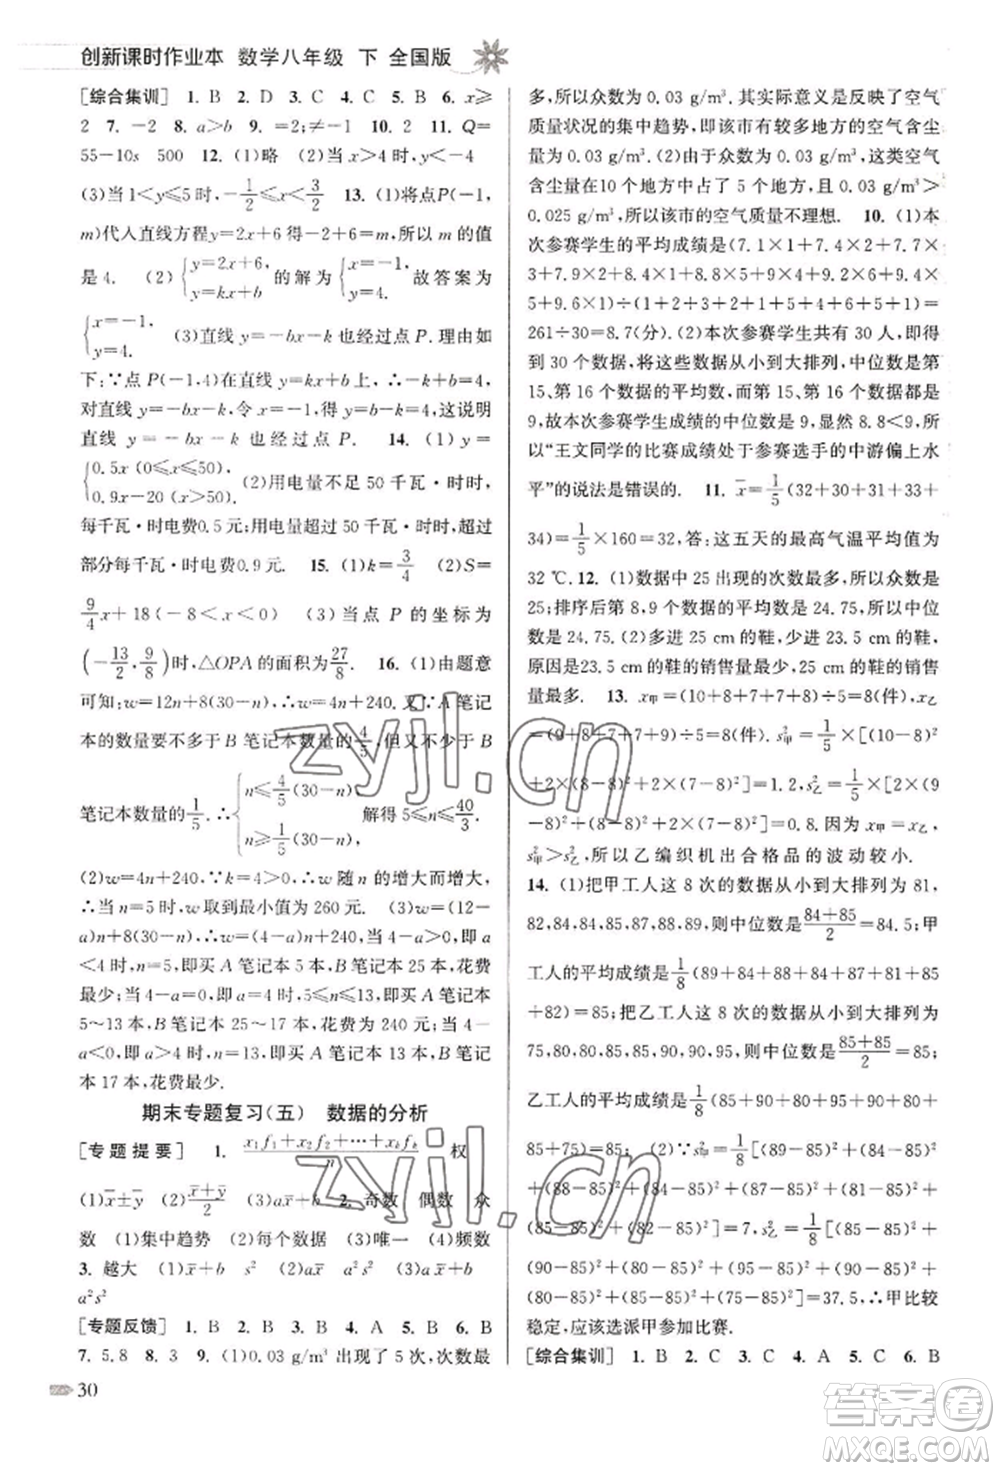 创新课时作业本 数学八年级 下 全国版
[综合集训] 1. B 2. D 3. C 4. C 5. B 6. x≥
2 7. -2 8. a>b 9. =2;≠-1 10. 2 11. Q=
55-10s 500 12. (1)略 (2)当 x<-4
(3)当 1<y≤5 时,-1/2≤x<3/2 13. (1)将点P(-1,
m)代入直线方程y=2x+6得-2+6=m,所以m的值
是4. (2){y=2x+6, y=kx+b 的解为{x=-1, y=4. 故答案为
{x=-1, y=4. (3)直线 y=-bx-k 也经过点 P. 理由如
下:∵点P(-1,4)在直线y=kx+b上,∴-k+b=4,
对直线 y=-bx-k,令x=-1,得y=b-k=4,这说明
直线 y=-bx-k 也经过点 P. 14. (1) y=
{0.5x(0≤x≤50), 0.9x-20(x>50). (2)用电量不足 50 千瓦·时,
每千瓦·时电费0.5元;用电量超过50千瓦·时,超过
部分每千瓦·时电费0.9元. 15. (1)k=3/4 (2)S=
9/4x+18(-8<x<0) (3)当点 P 的坐标为
(-13/2,9/8)时,△OPA的面积为27/8 16. (1)由题意
可知:w=12n+8(30-n),∴w=4n+240. 又∵A笔记
本的数量要不多于B笔记本数量的4/5,但又不少于B
笔记本数量的1/5. ∴{n≤4/5(30-n) n≥1/5(30-n) 解得 5≤n≤40/3
(2)w=4n+240,∵k>0,∴w随n的增大而增大,
∴当n=5时,w取到最小值为260元. (3)w=(12-
a)n+8(30-n),∴w=(4-a)n+240,当4-a>0,即a
<4时,n=5,即买A笔记本5本,B笔记本25本,花费
最少;当4-a=0,即a=4时,5≤n≤13,即买A笔记本
5~13本,B笔记本25~17本,花费为240元;当4-
a<0,即a>4时,n=13,即买A笔记本13本,B笔记
本17本,花费最少.
期末专题复习(五) 数据的分析
[专题提要] 1. (x₁f₁+x₂f₂+…+xₖfₖ)/n 权
(1)x̄±ȳ (2)(x̄+ȳ)/2 (3)ax̄+b 2. 奇数 偶数 众
数 (1)集中趋势 (2)每个数据 (3)唯一 (4)频数
3. 越大 (1)x̄+b s² (2)ax̄ a²s² (3)ax̄+b
a²s²
[专题反馈] 1. B 2. B 3. B 4. B 5. B 6. B
7. 5.8 8. 3 9. (1)0.03 g/m³ 出现了5次,次数最
多,所以众数为0.03 g/m³. 其实际意义是反映了空气
质量状况的集中趋势,即该市有较多地方的空气含尘
量为0.03 g/m³. (2)由于众数为0.03 g/m³,这类空气
含尘量在10个地方中占了5个地方,且0.03 g/m³>
0.025 g/m³,所以该市的空气质量不理想. 10. (1)本
次参赛学生的平均成绩=(7.1×2+7.4×3+7.7×
1+7.9×2+8.4×1+8.8×3+9×5+9.2×4+9.4×
3+9.5×3+9.6×1+9.7×2)÷(2+3+1+2+1+
3+5+4+3+3+1+2)÷(2+3+5+4+6+5+4+1)=
261÷30=8.7(分). (2)本次参赛学生共有30人,即得
到30个数据,将这些数据从小到大排列,中位数是第
15、第16个数据的平均数,而第15、第16个数据都是
9,故本次参赛学生成绩的中位数为9,显然8.8<9,所
以“王文同学的比赛成绩处于参赛选手的中游偏上水
平”的说法是错误的. 11. x̄=1/5(32+30+31+33+
34)=1/5×160=32,答:这五天的最高气温平均值为
32 ℃. 12. (1)数据中25出现的次数最多,所以众数为
25;排序后第8,9个数据的平均数是24.75,所以中位
数是24.75. (2)多进25 cm的鞋,少进23.5 cm的鞋,
原因是23.5 cm的鞋的销售量最少,25 cm的鞋的销售
量最多. 13. x甲=(10+8+7+7+8)÷5=8(件),x乙
=(9+8+7+7+9)÷5=8(件). s²甲=1/5×[(10-8)²
+2×(8-8)²+2×(7-8)²]=1.2,s²乙=1/5×[2×(9
-8)²+(8-8)²+2×(7-8)²]=0.8. 因为 x甲=x乙,
s²甲>s²乙,所以乙编织机出合格品的波动较小.
14. (1)把甲工人这8次的数据从小到大排列为81,
82,84,84,85,87,87,89,则中位数是(84+85)/2=84.5;甲
工人的平均成绩是1/8(89+84+87+82+84+81+85+
87)=85;把乙工人这8次的数据从小到大排列为
75,80,80,85,85,90,90,95,则中位数是(85+85)/2=85;
乙工人的平均成绩是1/8(85+90+90+80+95+90+80+
85+75)=85; (2)∵s²甲=1/8×[(89-85)²+(84-85)²
+(88-85)²+(87-85)²+(84-85)²+(87-85)²+
(85-85)²+(82-85)²]=7,s²乙=1/8×[(85-85)²
+(90-85)²+(80-85)²+(95-85)²+(90-85)²
+(80-85)²+(85-85)²]=37.5,∴甲比较
稳定,应该选派甲参加比赛.
[综合集训] 1. B 2. D 3. A 4. A 5. C 6. B
30
zyjl.cn
zyjl.cn
答案圈
MXQE.COM